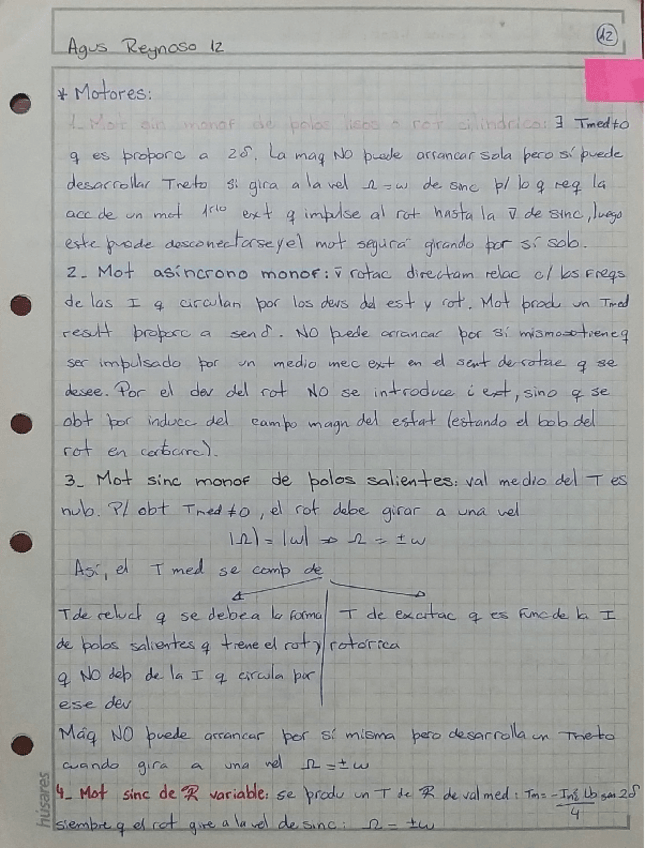 12
Agus Reynoso 12
* Motores:
1_ Mot sin monof de polos lisos o rot cilindrico: ∃ Tmed≠0
q es proporc a 2δ. La maq NO puede arrancar sola pero sí puede
desarrollar Tneto si gira a la vel Ω=ω de sinc p/ lo q req la
acc de un mot 1rio ext q impulse al rot hasta la v̄ de sinc, luego
este puede desconectarse y el mot seguirá girando por sí solo.
2_ Mot asíncrono monof: v̄ rotac directam relac c/ las freqs
de las I q circulan por los devs del est y rot. Mot produ un Tmed
result proporc a senδ. NO puede arrancar por sí mismo tiene q
ser impulsado por un medio mec ext en el sent de rotac q se
desee. Por el dev del rot NO se introduce i ext, sino q se
obt por inducc del campo magn del estat (estando el bob del
rot en cortocirc).
3_ Mot sinc monof de polos salientes: val medio del T es
nulo. P/ obt Tmed≠0, el rot debe girar a una vel
|Ω| = |ω| ⇒ Ω = ±ω
Así, el T med se comp de
T de reluct q se debe a la forma
de polos salientes q tiene el rot y
q NO dep de la I q circula por
ese dev
T de excitac q es func de la I
rotórica
Máq NO puede arrancar por sí misma pero desarrolla un Tneto
cuando gira a una vel Ω = ±ω
4_ Mot sinc de ℛ variable: se produ un T de ℛ de val med: Tm = -Im² Lb sen 2δ / 4
siempre q el rot gire a la vel de sinc: Ω = ±ω
húsares